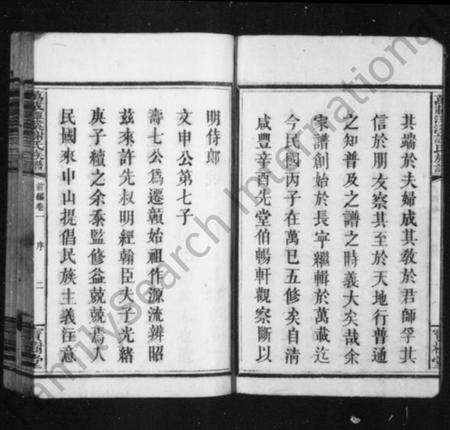 其端於夫婦成其教於君師孚其
信於朋友察其至於天地行普通
之知普及之譜之時義大矣哉余
家譜創始於長寧繼輯於萬載迄
今民國丙子在萬已五修矣自清
咸豐辛酉先堂伯暢軒觀察斷以
明侍郎
文申公第七子
壽七公為遷贛始祖作源流辨昭
茲來許先叔明經翰臣夫子光緒
庚子續之余忝監修益兢兢焉入
民國來中山提倡民族主義注意
前編卷一 序 二
FamilySearch International